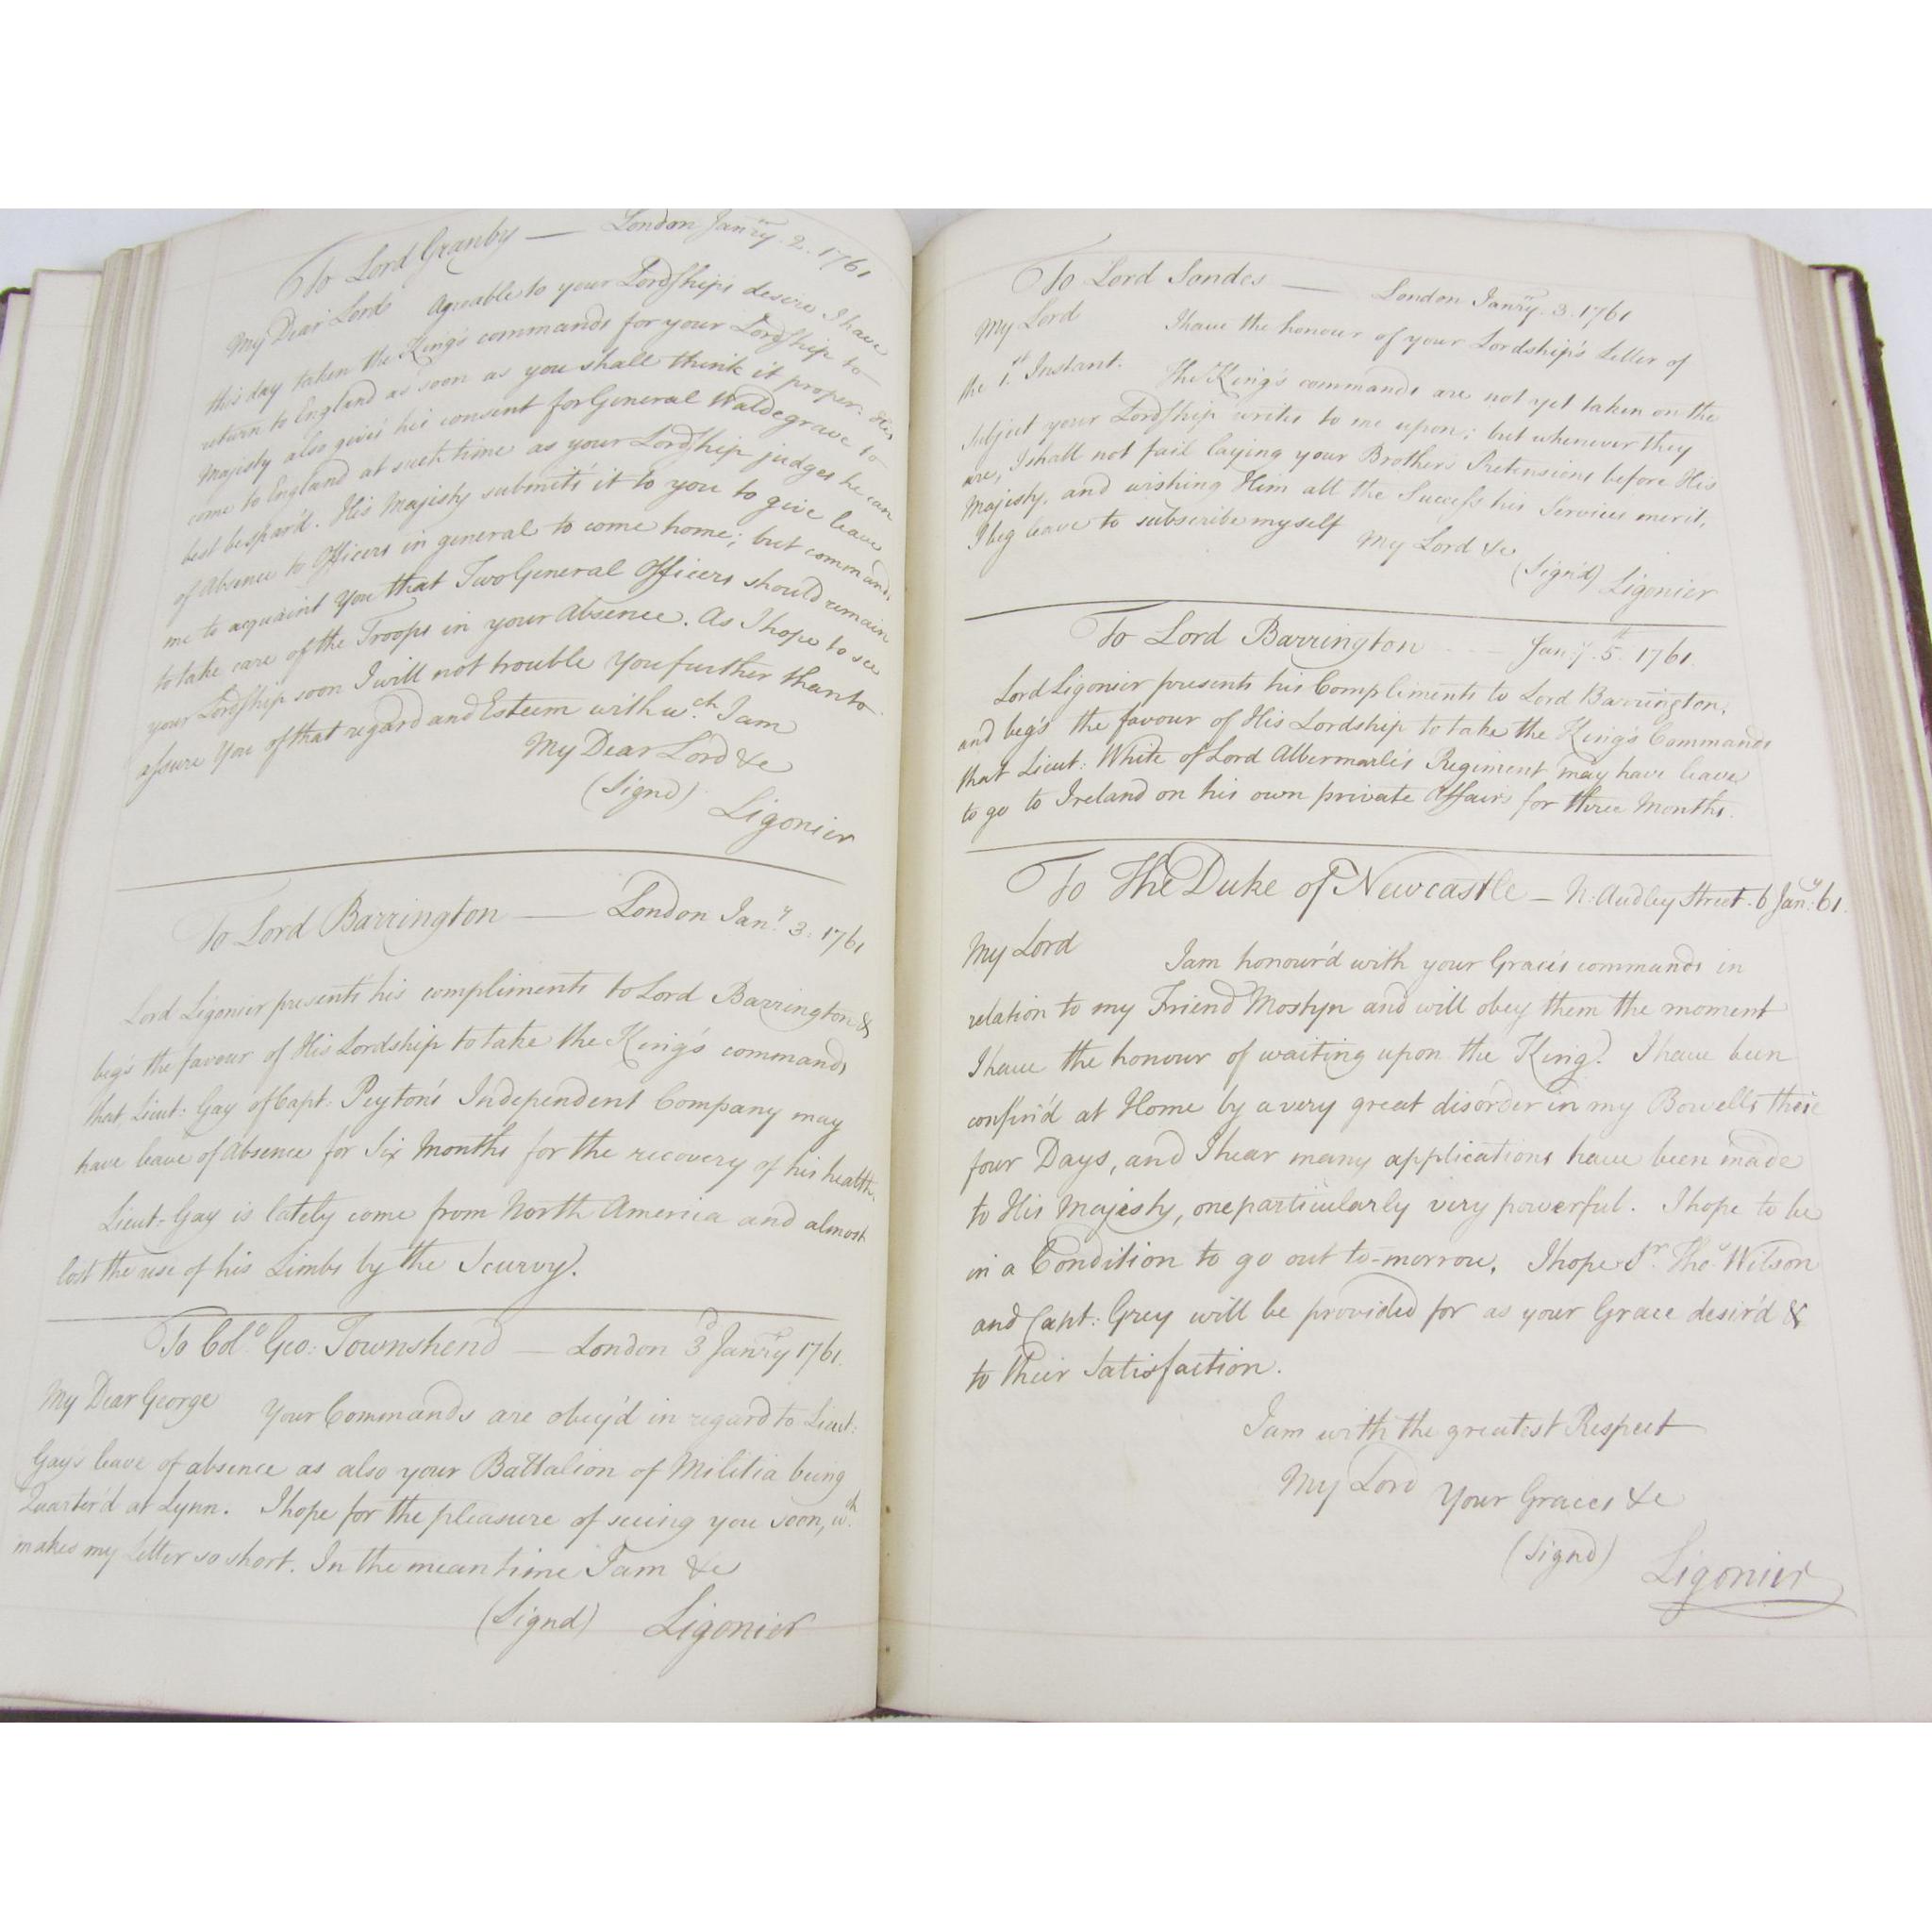 To Lord Granby — London Janry. 2. 1761
My Dear Lord Agreable to your Lordship's desire I have
this day taken the King's commands for your Lordship to
return to England as soon as you shall think it proper. His
Majesty also gives his consent for General Waldegrave to
come to England at such time as your Lordship judges he can
best be spar'd. His Majesty submits it to you to give leave
of Absence to Officers in general to come home; but commands
me to acquaint You that Two General Officers should remain
to take care of the Troops in your Absence. As I hope to see
your Lordship soon I will not trouble You further than to
assure You of that regard and Esteem with wch. I am
My Dear Lord &c
(Signd) Ligonier
To Lord Barrington — London Jany. 3. 1761
Lord Ligonier presents his compliments to Lord Barrington &
beg's the favour of His Lordship to take the King's commands
that Lieut: Gay of Capt: Peyton's Independent Company may
have leave of Absence for Six Months for the recovery of his health.
Lieut: Gay is lately come from North America and almost
lost the use of his Limbs by the Scurvy.
To Colo. Geo: Townshend — London 3d Janry 1761.
My Dear George Your Commands are obey'd in regard to Lieut:
Gay's leave of absence as also your Battalion of Militia being
Quarter'd at Lynn. I hope for the pleasure of seeing you soon, wch.
makes my Letter so short. In the mean time I am &c
(Signd) Ligonier
To Lord Sondes — London Janry. 3. 1761
My Lord I have the honour of your Lordship's Letter of
the 1st. Instant. The King's commands are not yet taken on the
subject your Lordship writes to me upon; but whenever they
are, I shall not fail laying your Brother's Pretensions before His
Majesty, and wishing Him all the Success his Services merit,
I beg leave to subscribe myself My Lord &c
(Sign'd) Ligonier
To Lord Barrington - - — Jany. 5th. 1761.
Lord Ligonier presents his Compliments to Lord Barrington,
and beg's the favour of His Lordship to take the King's Commands
that Lieut: White of Lord Albermarle's Regiment may have leave
to go to Ireland on his own private Affairs for three Months.
To The Duke of Newcastle — N. Audley Street. 6 Jany: 61.
My Lord I am honour'd with your Grace's commands in
relation to my Friend Mostyn and will obey them the moment
I have the honour of waiting upon the King. I have been
confin'd at Home by a very great disorder in my Bowells these
four Days, and I hear many applications have been made
to His Majesty, one particularly very powerful. I hope to be
in a Condition to go out to-morrow. I hope Sr. Thos. Wilson
and Capt: Grey will be provided for as your Grace desir'd &
to their Satisfaction.
I am with the greatest Respect
My Lord Your Graces &c
(Signd) Ligonier